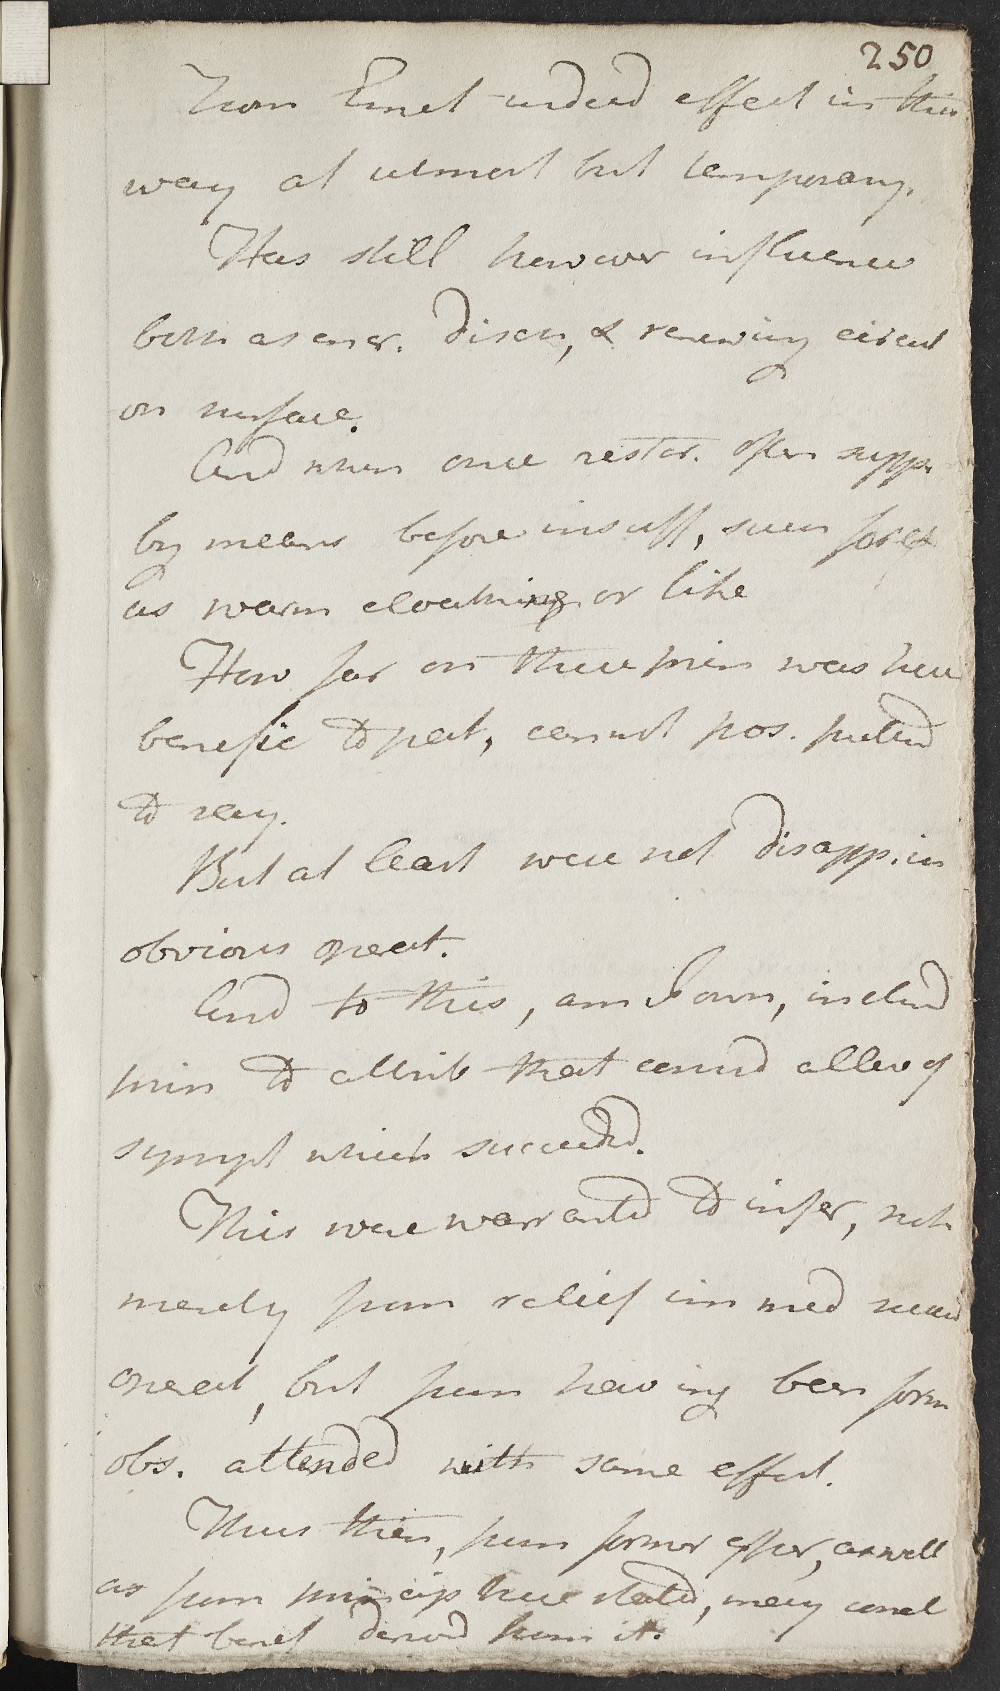 250
From Emet indeed effect in this
way at utmost but temporary.
Has still however influence
both as ener. Disch, & renewing circul
on surface.
And when once restor. often supp.
by means before insuff, such for ex
as warm cloathing or like
How far on these prin was here
benefic to pat, cannot pos. pretend
to say.
But at least were not disapp. in
obvious operat.
And to this, am I own, inclind
prin to attrib that consid allev of
sympt which succeeded.
This were warranted to infer, not
merely from relief immed succed
operat, but from having been form
obs. attended with same effect.
Thus then, from former exper, as well
as from princip here stated, may concl
that benef derived from it.